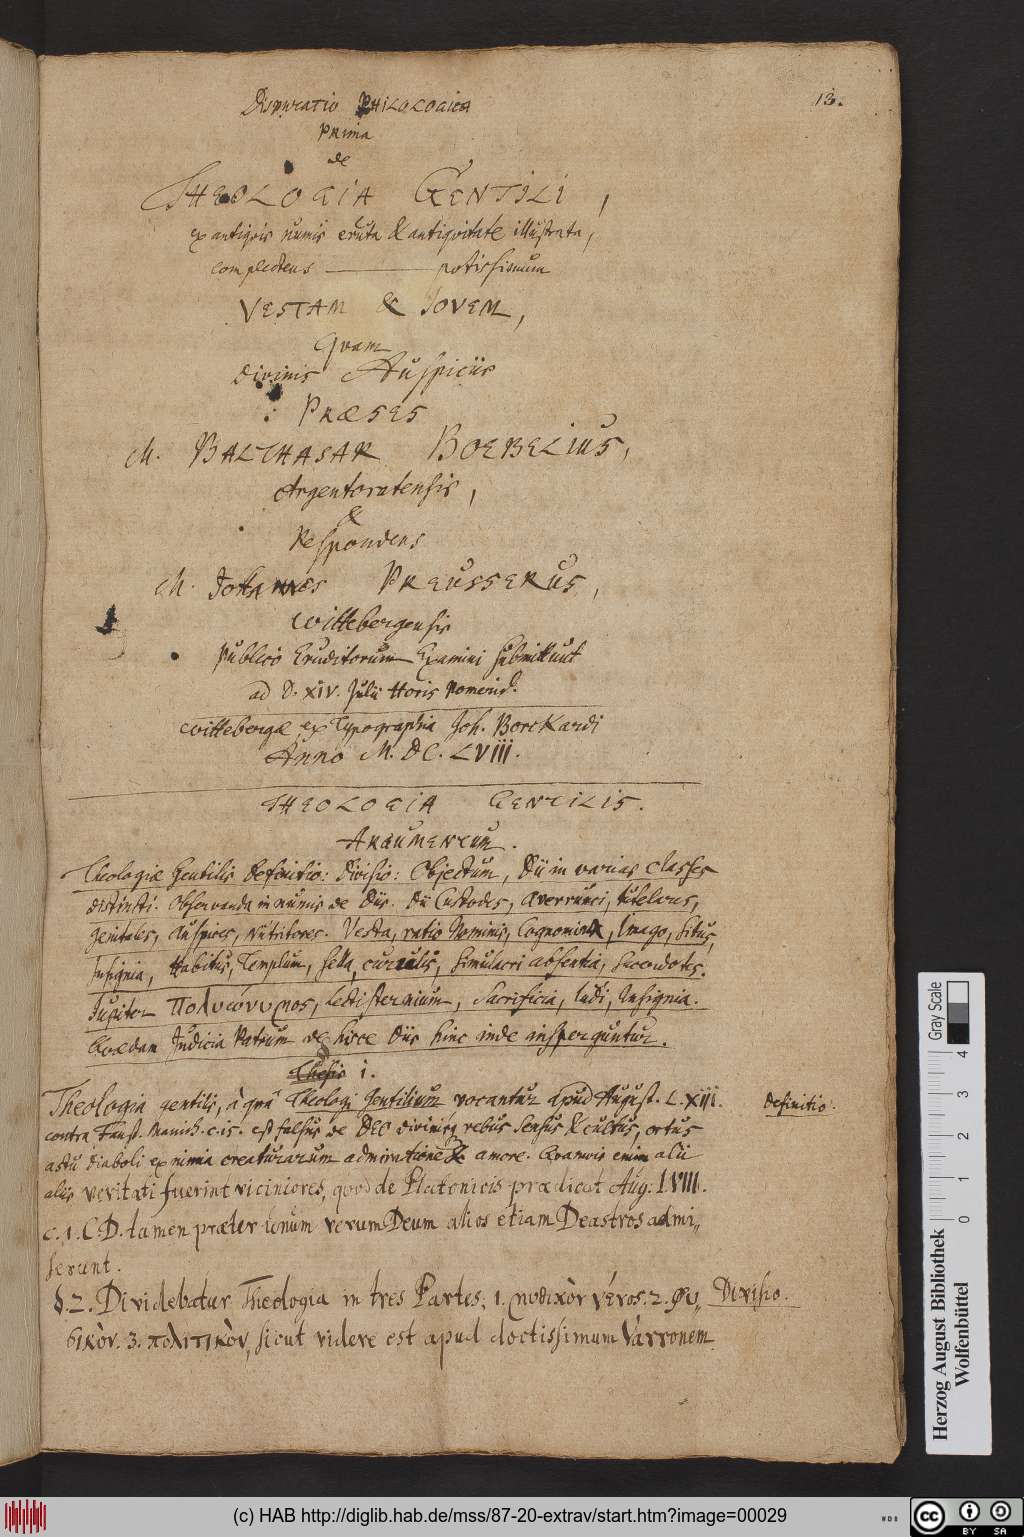 13.
Disputatio PHILOLOGICA
PRima
de
THEOLOGIA GENTILI,
ex antiqvis numis eruta & antiqvitate illustrata,
complectens ——— potissimum
VESTAM & JOVEM,
Qvam
Divinis Auspiciis
PRÆSES
M. BALTHASAR BOEBELIUS,
Argentoratensis,
&
Respondens
M. Johannes PREUSSERUS,
Wittebergensis
Publico Eruditorum Examini submittunt
ad D. XIV. Julii Horis Pomerid.
Wittebergæ ex Typographia Joh. Borckardi
Anno M. DC. LVIII.
THEOLOGIA GENTILIS.
ARGUMENTUM.
Theologiæ Gentilis definitio: divisio: Objectum, Dii in varias classes
distincti. Observanda in numis de Diis. Dii Custodes, averrunci, tutelares,
genitales, auspices, nutritores. Vesta, ratio Nominis, Cognomina, Imago, Situs,
Insignia, Habitus, Templum, sella, curulis, simulacri absentia, sacerdotes.
Jupiter πολυώνυμος, lectisternium, Sacrificia, ludi, Insignia.
Quædam Judicia Patrum de hisce Diis hinc inde insperguntur.
§
Thesis 1.
Theologia gentilis, à qvâ Theologi Gentilium vocantur apud August. L. XIII.
Definitio.
contra Faust. Manich. c. 15. est falsus de DEO divinisq rebus sensus & cultus, ortus
astu diaboli ex nimia creaturarum admiratione & amore. Qvamvis enim alii
aliis veritati fuerint viciniores, qvod de Platonicis prædicat Aug. l. VIII.
c. 1. C. D. tamen præter unum verum Deum alios etiam Deastros admi„
serunt.
§. 2. Dividebatur Theologia in tres Partes, 1. μυθικὸν γένος. 2. φυ„
Divisio.
σικὸν. 3. πολιτικὸν, sicut videre est apud doctissimum Varronem
Herzog August Bibliothek
Wolfenbüttel
0 1 2 3 4
Gray Scale
(c) HAB http://diglib.hab.de/mss/87-20-extrav/start.htm?image=00029
cc BY SA